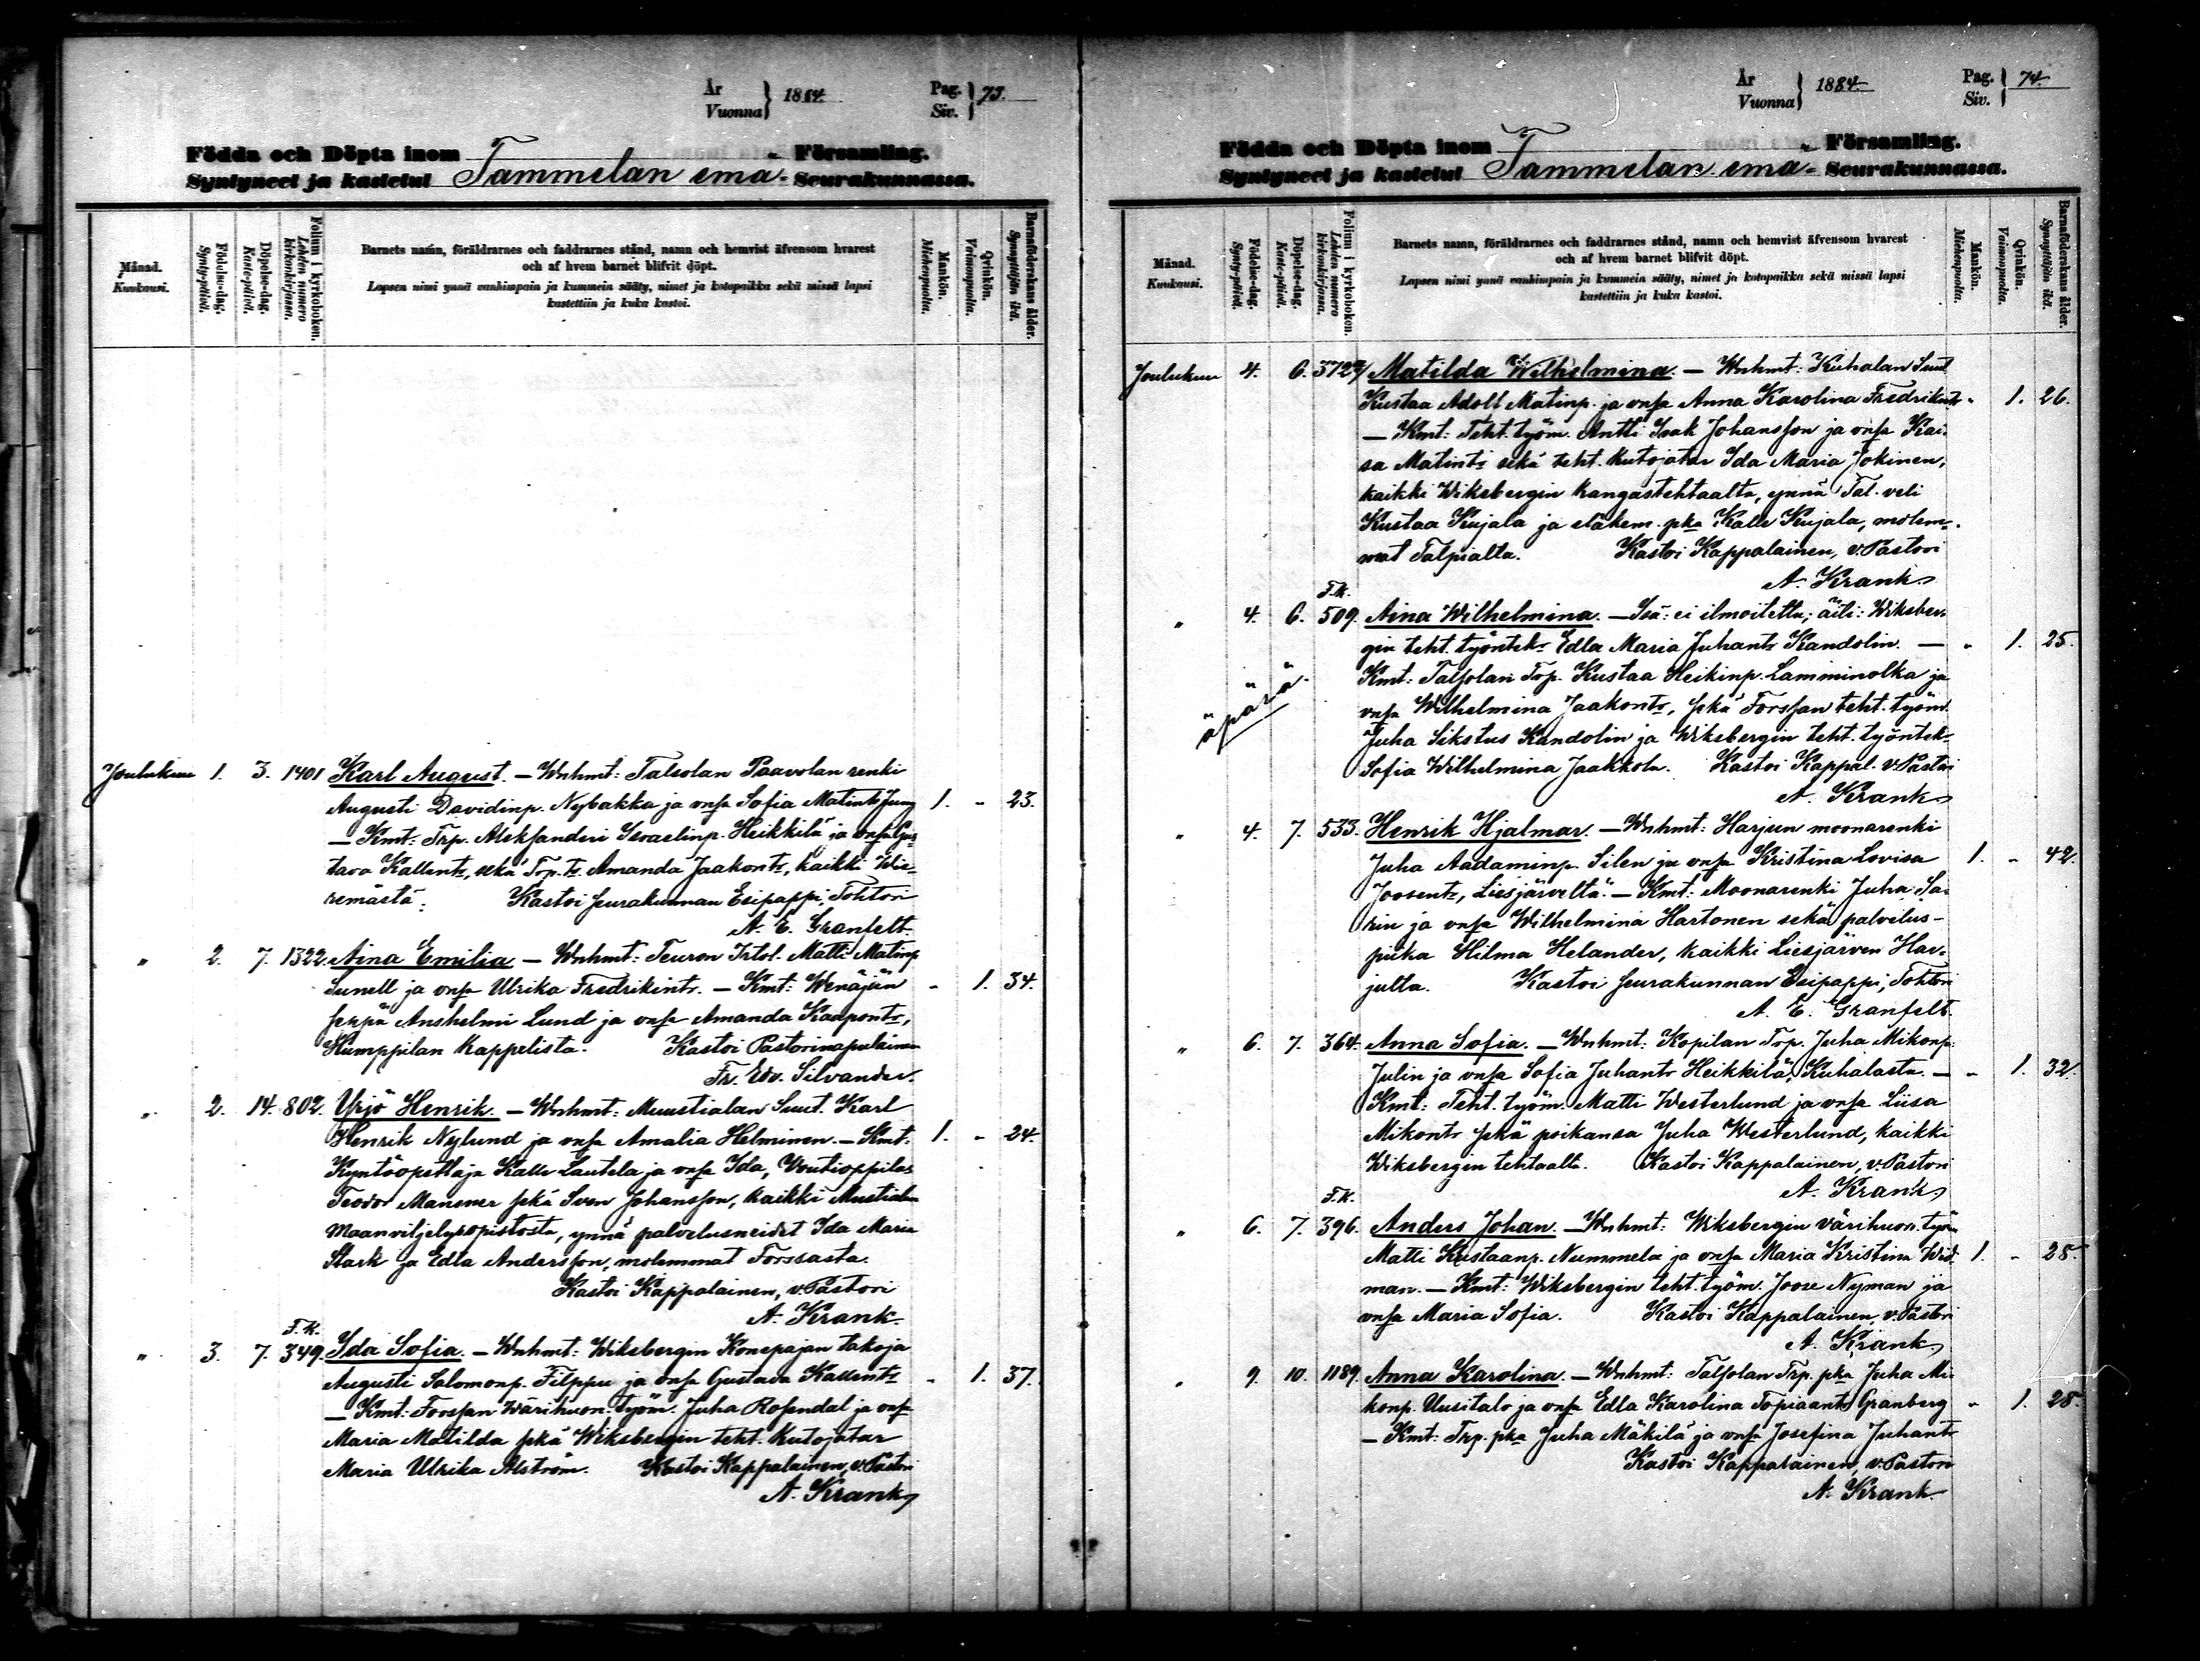 År
Vuonna } 1884.
Pag.
Siv. } 73.
Födda och Döpta inom
Syntyneet ja kastetut Tammelan emä-
Församling.
Seurakunnassa.
Månad.
Kuukausi.
Födelse-dag.
Synty-päivä.
Döpelse-dag.
Kaste-päivä.
Folium i kyrkoboken.
Lehden numero kirkonkirjassa.
Barnets namn, föräldrarnes och faddrarnes stånd, namn och hemvist äfvensom hvarest
och af hvem barnet blifvit döpt.
Lapsen nimi ynnä vanhimpain ja kummein sääty, nimet ja kotopaikka sekä missä lapsi
kastettiin ja kuka kastoi.
Mankön.
Miehenpuolta.
Qvinkön.
Vaimonpuolta.
Barnaföderskans ålder.
Synnyttäjän ikä.
Joulukuu 1. 3. 1401 Karl August. — Wnhmt: Talsolan Paavolan renki
Augusti Davidinp. Nybakka ja vmsa Sofia Matintr Jung 1. - 23.
— Kmt: Trp. Aleksanderi Israelinp. Heikkilä ja vmsa Gus-
tava Kallentr, sekä Trp. tr. Amanda Jaakontr, kaikki Wie-
remästä. Kastoi seurakunnan Esipappi, Tohtori
A. E. Granfelt.
" 2. 7. 1322. Aina Emilia — Wnhmt: Teuron Irtol. Matti Matinp
Sunell ja vmsa Ulrika Fredrikintr. — Kmt: Wenäjän - 1. 34.
seppä Anshelmi Lund ja vmsa Amanda Kaapontr,
Humppilan kappelista. Kastoi Pastorinapulainen
Fr. Edv. Silvander.
" 2. 14. 802. Yrjö Henrik. — Wnhmt: Muustialan Suut. Karl
Henrik Nylund ja vmsa Amalia Helminen. — Kmt: 1. - 24.
Kyntöopettaja Kalle Lautela ja vmsa Ida, Voutioppilas
Teodor Manner sekä Sven Johansson, kaikki Mustialan
maanviljelysopistosta, ynnä palvelusneidet Ida Maria
Stark ja Edla Andersson, molemmat Forssasta.
Kastoi Kappalainen, v. Pastori
A. Krank.
F.K.
" 3. 7. 349. Ida Sofia. — Wnhmt: Wiksbergin Konepajan takoja
Augusti Salomonp. Filppu ja vmsa Gustava Kallentr - 1. 37.
— Kmt: Forssan Wärihuon. työm. Juha Rosendal ja vmsa
Maria Matilda sekä Wiksbergin teht. Kutojatar
Maria Ulrika Alström. Kastoi Kappalainen, v. Pastori
A. Krank
År
Vuonna } 1884.
Pag.
Siv. } 74.
Födda och Döpta inom
Syntyneet ja kastetut Tammelan emä-
Församling.
Seurakunnassa.
Månad.
Kuukausi.
Födelse-dag.
Synty-päivä.
Döpelse-dag.
Kaste-päivä.
Folium i kyrkoboken.
Lehden numero kirkonkirjassa.
Barnets namn, föräldrarnes och faddrarnes stånd, namn och hemvist äfvensom hvarest
och af hvem barnet blifvit döpt.
Lapsen nimi ynnä vanhimpain ja kummein sääty, nimet ja kotopaikka sekä missä lapsi
kastettiin ja kuka kastoi.
Mankön.
Miehenpuolta.
Qvinkön.
Vaimonpuolta.
Barnaföderskans ålder.
Synnyttäjän ikä.
Joulukuu 4. 6. Matilda Wilhelmina. — Wnhmt: Kuhalan Suut
Kustaa Adolf Matinp. ja vmsa Anna Karolina Fredrikintr - 1. 26.
— Kmt: Teht. työm. Antti Isak Johansson ja vmsa Kai-
sa Matintr sekä teht. kutojatar Ida Maria Jokinen,
kaikki Wiksbergin kangastehtaalta, ynnä Tal. veli
Kustaa Kujala ja pka Kalle Kujala, molem-
mat Talpialta. Kastoi Kappalainen, v. Pastori
A. Krank
F.K.
" 4. 6. 509. Aina Wilhelmina. — Isä: ei ilmoitettu; äiti: Wiksber-
gin teht. työntek. Edla Maria Juhantr Kandolin. — - 1. 25.
Kmt: Talsolan Trp. Kustaa Heikinp. Lamminolka ja
vmsa Wilhelmina Jaakontr, sekä Forssan teht. työm.
äpärä
Juha Sikstus Kandolin ja Wiksbergin teht. työntek.
Sofia Wilhelmina Jaakkola. Kastoi Kappal. v. Pastori
A. Krank
" 4. 7. 533. Henrik Hjalmar. — Wnhmt: Harjun moonarenki
Juha Aadaminp. Silen ja vmsa Kristina Lovisa 1. - 42.
Joosentr, Liesjärveltä. — Kmt: Moonarenki Juha Sa-
rin ja vmsa Wilhelmina Hartonen sekä palvelus-
piika Hilma Helander, kaikki Liesjärven Har-
julta. Kastoi seurakunnan Esipappi, Tohtori
A. E. Granfelt.
" 6. 7. 364. Anna Sofia. — Wnhmt: Kopilan Trp. Juha Mikonp.
Julin ja vmsa Sofia Juhantr Heikkilä, Kuhalasta. — - 1. 32.
Kmt: Teht. työm. Matti Westerlund ja vmsa Liisa
Mikontr sekä poikansa Juha Westerlund, kaikki
Wiksbergin tehtaalta. Kastoi Kappalainen, v. Pastori
A. Krank
F.K.
" 6. 7. 396. Anders Johan. — Wnhmt: Wiksbergin värihuon. työm
Matti Kustaanp. Nummela ja vmsa Maria Kristina Wid- 1. - 28.
man. — Kmt: Wiksbergin teht. työm. Joose Nyman ja
vmsa Maria Sofia. Kastoi Kappalainen, v. Pastori
A. Krank
" 9. 10. 1189. Anna Karolina. — Wnhmt: Talsolan Trp. pka Juha Mi-
konp. Uusitalo ja vmsa Edla Karolina Topiaantr Granberg - 1. 28.
— Kmt: Trp. pka Juha Mäkilä ja vmsa Josefina Juhantr
Kastoi Kappalainen, v. Pastori
A. Krank